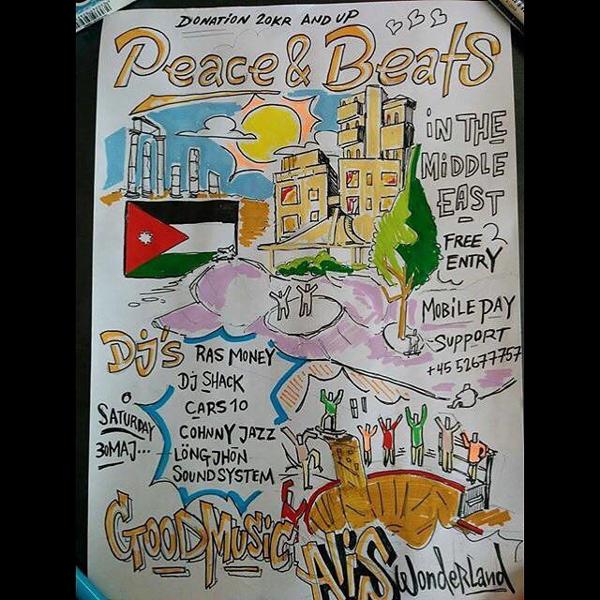 DONATION 20KR AND UP
Peace & Beats
iN THE
MiDDLE
EAST
FREE
ENTRY
MOBILE PAY
SUPPORT
+45 52677757
DJ's
RAS MONEY
DJ SHACK
CARS 10
COHNNY JAZZ
LÖNG JHÖN
SOUNDSYSTEM
SATURDAY
30MAJ...
GOOD MUSiC
ALiS WONDERLAND